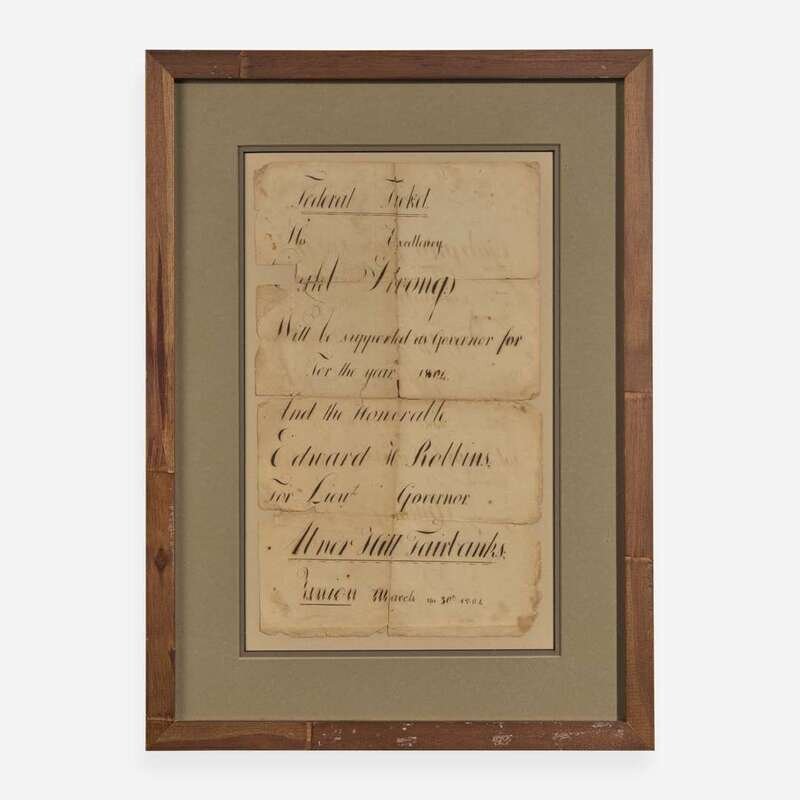 Federal Ticket
His Excellency
Strong
Will be supported as Governor for
For the year 1804.
And the Honorable
Edward H Robbins,
For Lieut. Governor
Abner Hill Fairbanks.
Union March the 30th 1804